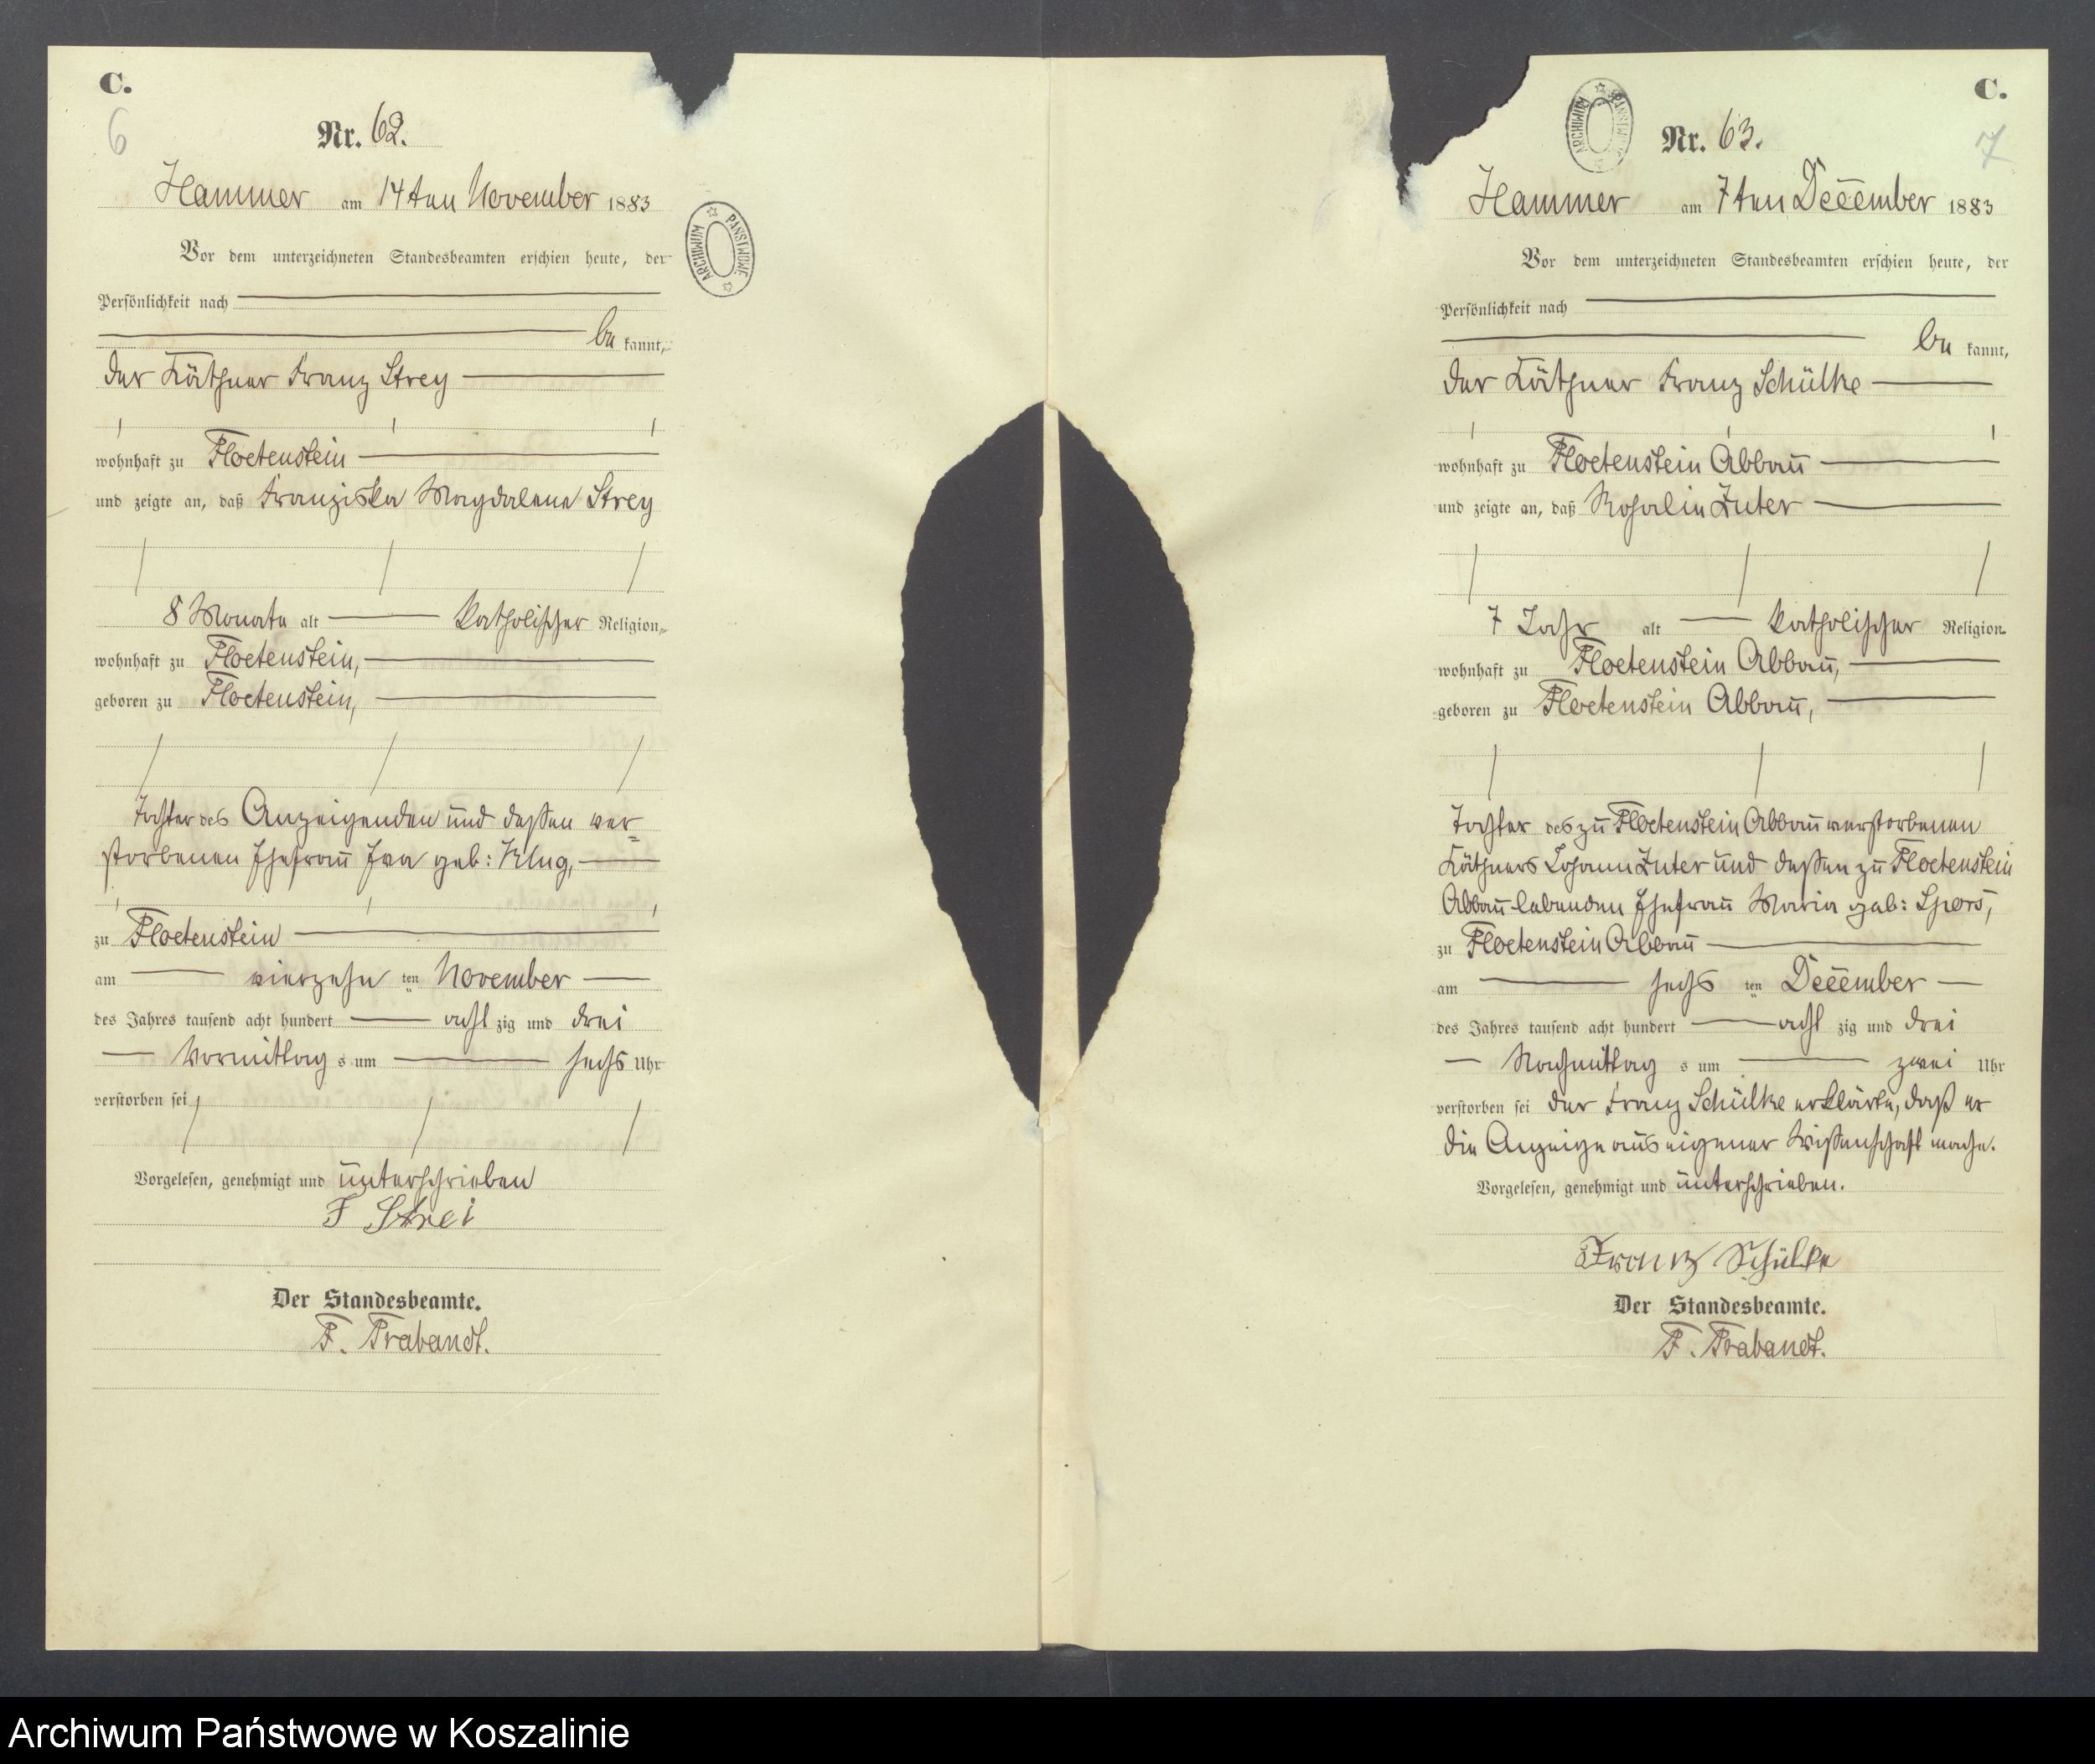 C.
6
Nr. 62.
Hammer am 14ten November 1883
Vor dem unterzeichneten Standesbeamten erschien heute, der
Persönlichkeit nach
be kannt,
der Käthner Franz Strey
wohnhaft zu Floetenstein
und zeigte an, daß Franziska Magdalena Strey
8 Monate alt katholischer Religion,
wohnhaft zu Floetenstein,
geboren zu Floetenstein,
Tochter des Anzeigenden und deßen ver=
storbenen Ehefrau Eva geb: Klug,
zu Floetenstein
am vierzehn ten November
des Jahres tausend acht hundert acht zig und drei
Vormittag s um sechs Uhr
verstorben sei
Vorgelesen, genehmigt und unterschrieben
F Strei
Der Standesbeamte.
F. Trabandt.
ARCHIWUM PAŃSTWOWE
C.
7
ARCHIWUM PAŃSTWOWE
Nr. 63.
Hammer am 7ten December 1883
Vor dem unterzeichneten Standesbeamten erschien heute, der
Persönlichkeit nach
be kannt,
der Käthner Franz Schülke
wohnhaft zu Floetenstein Abbau
und zeigte an, daß Rosalie Zuter
7 Jahr alt katholischer Religion
wohnhaft zu Floetenstein Abbau,
geboren zu Floetenstein Abbau,
Tochter des zu Floetenstein Abbau verstorbenen
Käthners Johann Zuter und deßen zu Floetenstein
Abbau lebenden Ehefrau Maria geb: Spors,
zu Floetenstein Abbau
am sechs ten December
des Jahres tausend acht hundert acht zig und drei
Nachmittag s um zwei Uhr
verstorben sei der Franz Schülke erklärte, daß er
die Anzeige aus eigener Wißenschaft mache.
Vorgelesen, genehmigt und unterschrieben.
Franz Schülke
Der Standesbeamte.
F. Trabandt.
Archiwum Państwowe w Koszalinie